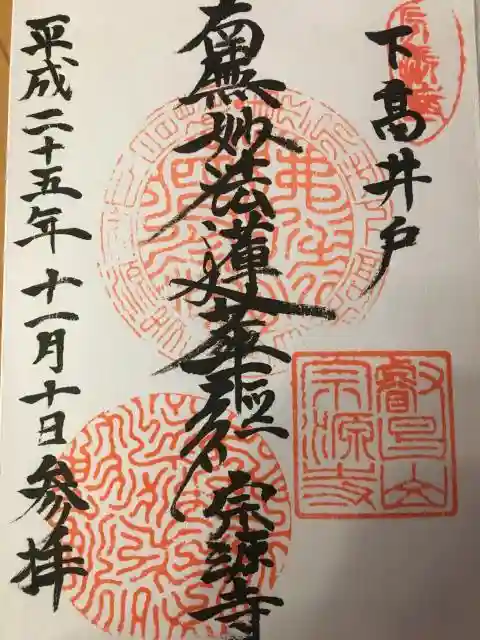 下高井戸
南無妙法蓮華経
宗源寺
平成二十五年十一月十日参拝
叡昌山
宗源寺